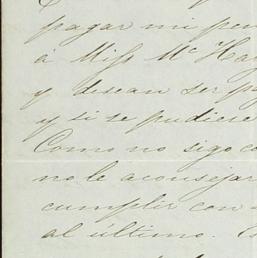 pagar mi pen
á Miss Mc Ha
y desean ser p
y si se pudiere
Como no sigo co
no le aconseja
cumplir con
al último.